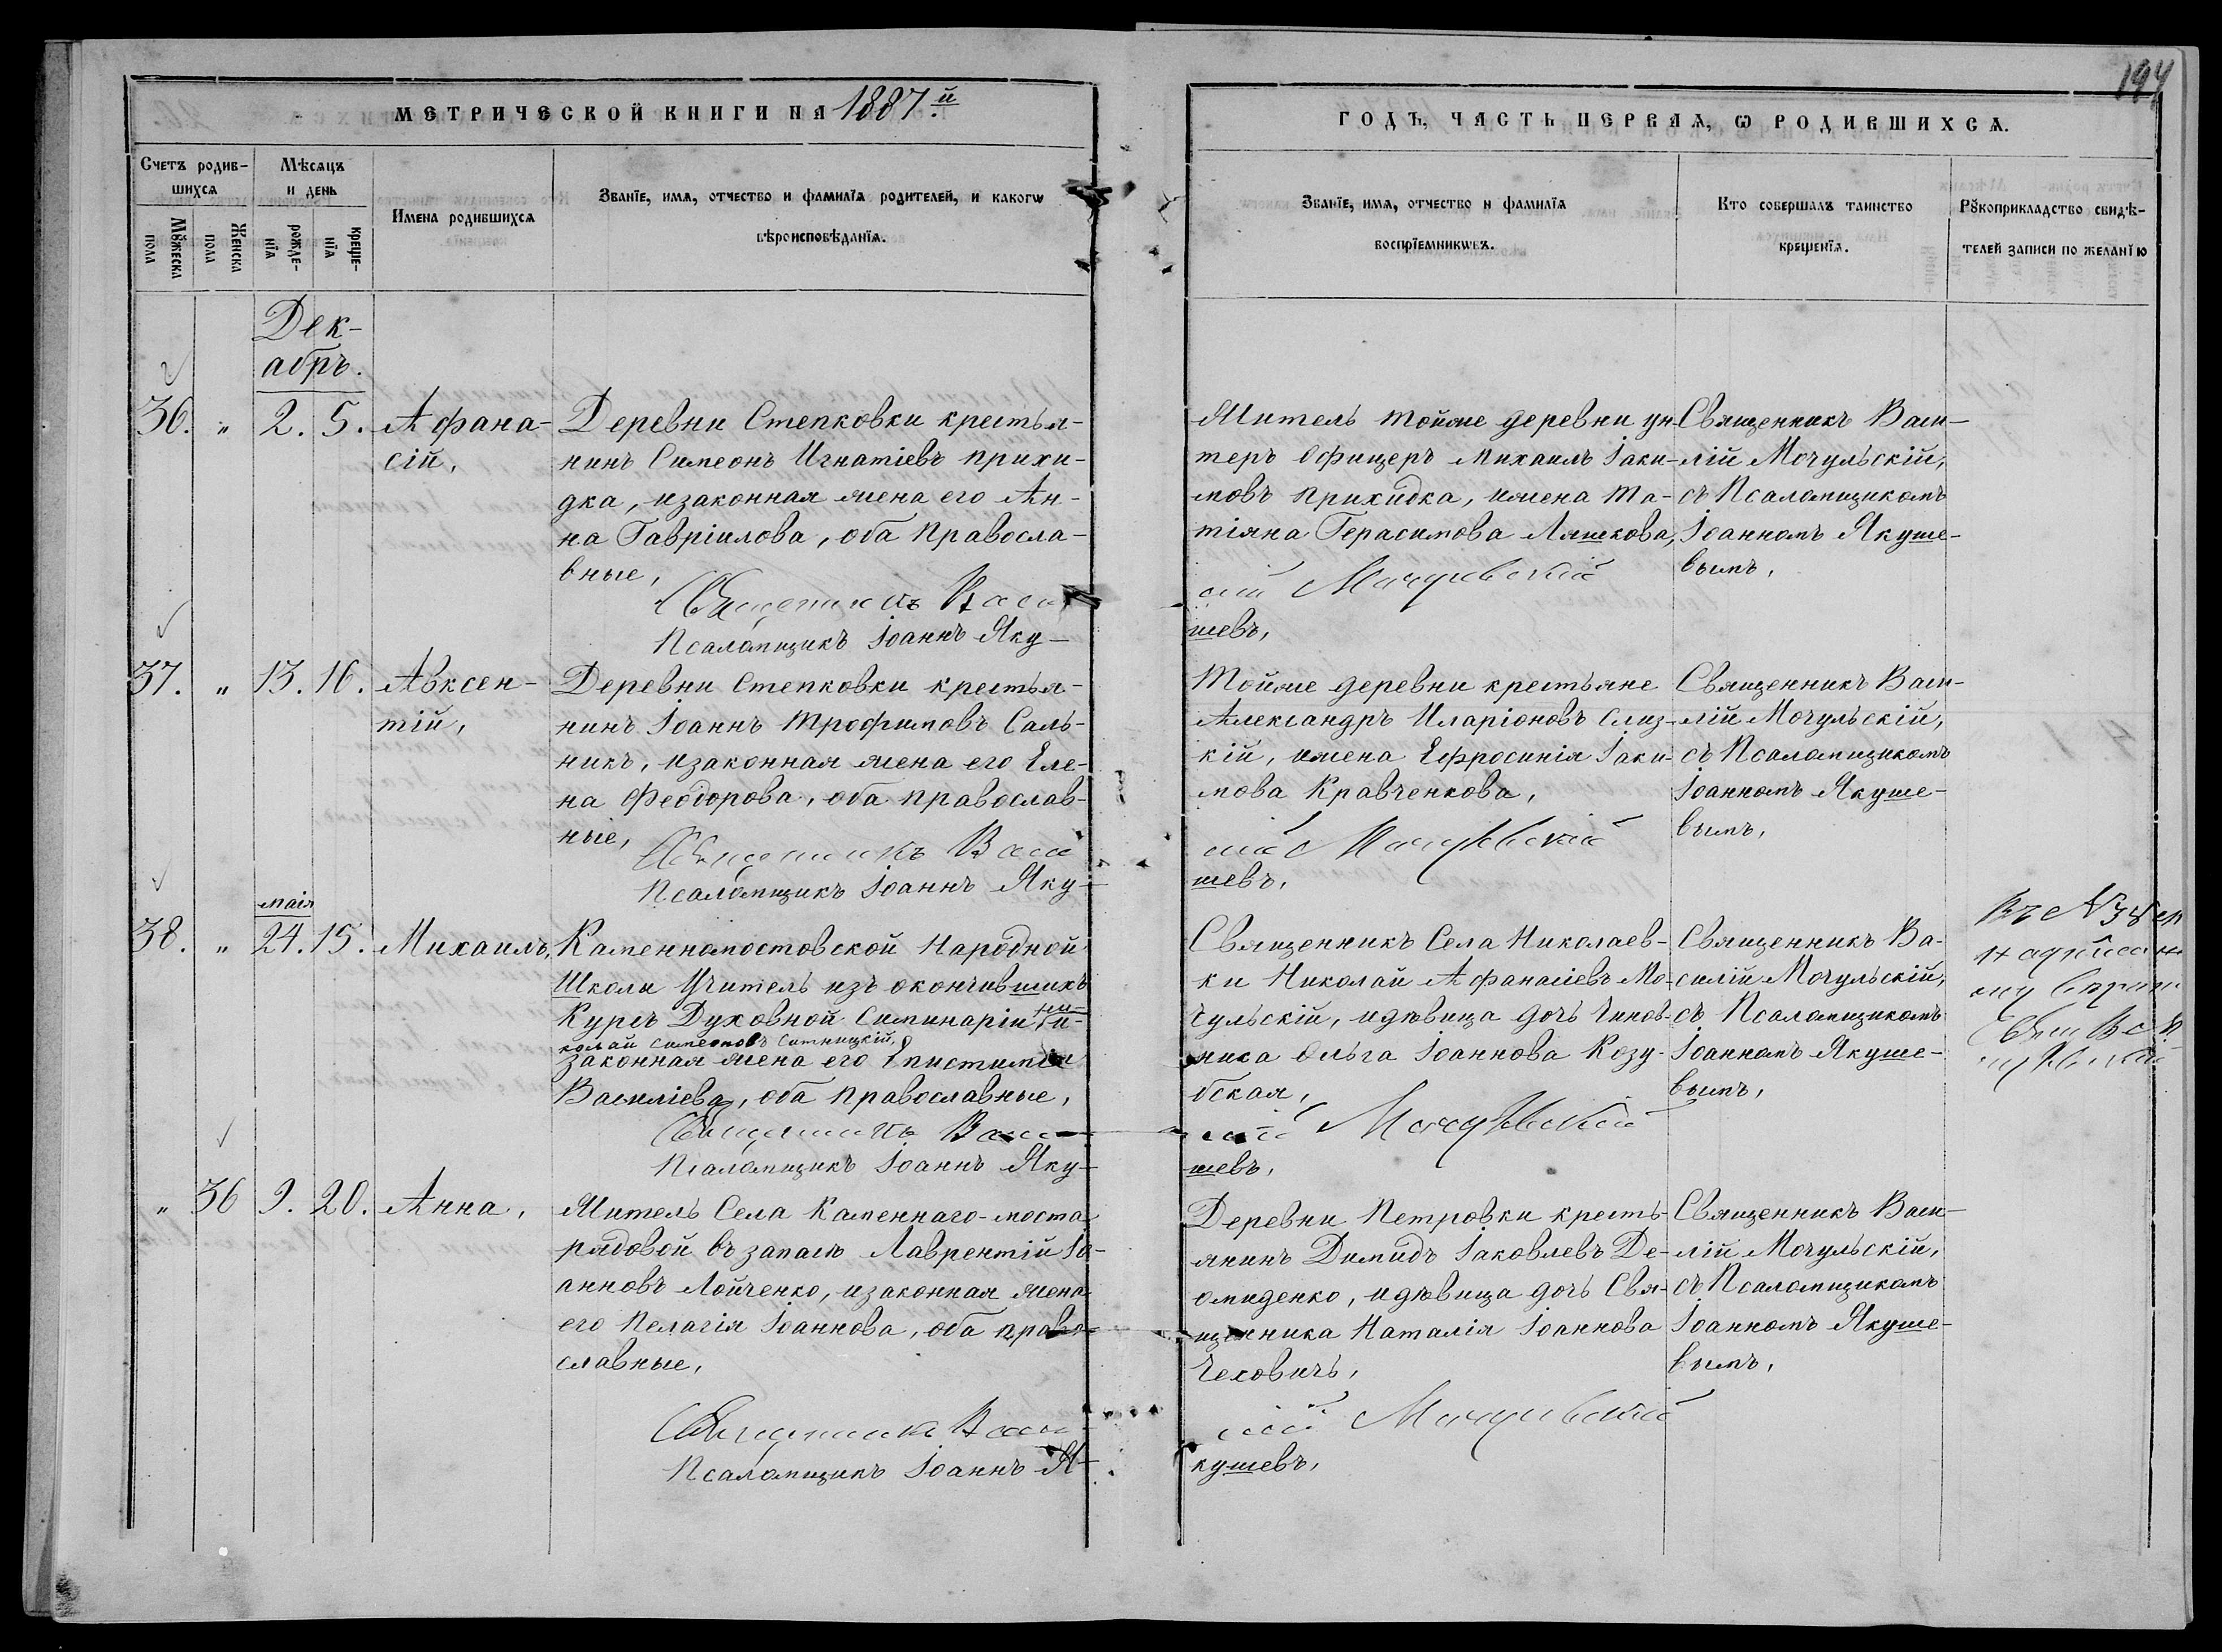 194
МЕТРИЧЕСКОЙ КНИГИ НА 1887.й
ГОДЪ, ЧАСТЬ ПЕРВАЯ, Ѡ РОДИВШИХСѦ.
Счетъ родив-
шихсѧ
Мѣсѧцъ
и день
Имена родившихсѧ
Званїе, имѧ, отчество и фамилїѧ родителей, и какогѡ
вѣроисповѣданїѧ.
Званїе, имѧ, отчество и фамилїѧ
воспрїемникѡвъ.
Кто совершалъ таинство
крещенїѧ.
Рꙋкоприкладство свидѣ-
телей записи по желанїю
Мꙋжеска
пола
Женска
пола
рожде-
нїѧ
креще-
нїѧ
Дек-
абръ.
36. " 2. 5. Афана-
сій,
Деревни Степковки крестья-
нинъ Симеонъ Игнатіевъ Прихи-
дка, изаконная жена его Ан-
на Гавріилова, оба Правосла-
вные,
Священникъ Васи
Псаломщикъ Іоаннъ Яку-
Житель тойже деревни ун-
теръ Офицеръ Михаилъ Іаки-
мовъ Прихидка, ижена Та-
тіяна Герасимова Ляшкова,
лій Мочульскій
шевъ,
Священникъ Васи-
лій Мочульскій,
съ Псаломщикомъ
Іоанномъ Якуше-
вымъ,
37. " 13. 16. Авксен-
тій,
Деревни Степковки крестья-
нинъ Іоаннъ Трофимовъ Саль-
никъ, изаконная жена его Еле-
на Феодорова, оба православ-
ніе,
Священникъ Васи
Псаломщикъ Іоаннъ Яку-
Тойже деревни крестьяне
Александръ Иларіоновъ Слиз-
кій, ижена Ефросинія Іаки-
мова Кравченкова,
лій Мочульскій
шевъ,
Священникъ Васи-
лій Мочульскій,
съ Псаломщикомъ
Іоанномъ Якуше-
вымъ,
маія
38. " 24. 15. Михаилъ,
Каменномостовской Народной
Школи Учитель изъ окончившихъ
Курсъ Духовной Симинаріи Ни-
колай Симеоновъ Ситницкій, и
законная жена его Епистимія
Василіева, оба православные,
Священникъ Васи
Псаломщикъ Іоаннъ Яку-
Священникъ Села Николаев-
ки Николай Афанасіевъ Мо-
чульскій, идѣвица дочь Чинов-
ника Ольга Іоаннова Козу-
бская,
лій Мочульскій
шевъ,
Священникъ Ва-
силій Мочульскій,
съ Псаломщикомъ
Іоанномъ Якуше-
вымъ,
Въ № 38
надписан
" 36 9. 20. Анна,
Житель Села Каменнаго-моста
рядовой въ запасѣ Лаврентій Іо-
анновъ Лойченко, изаконная жена
его Пелагія Іоаннова, оба право-
славные,
Священникъ Васи
Псаломщикъ Іоаннъ Я-
Деревни Петровки кресть-
янинъ Димидъ Іаковлевъ Де-
омиденко, идѣвица дочь Свя-
щенника Наталія Іоаннова
Чеховичъ,
лій Мочульскій
кушевъ,
Священникъ Васи-
лій Мочульскій,
съ Псаломщикомъ
Іоанномъ Якуше-
вымъ,